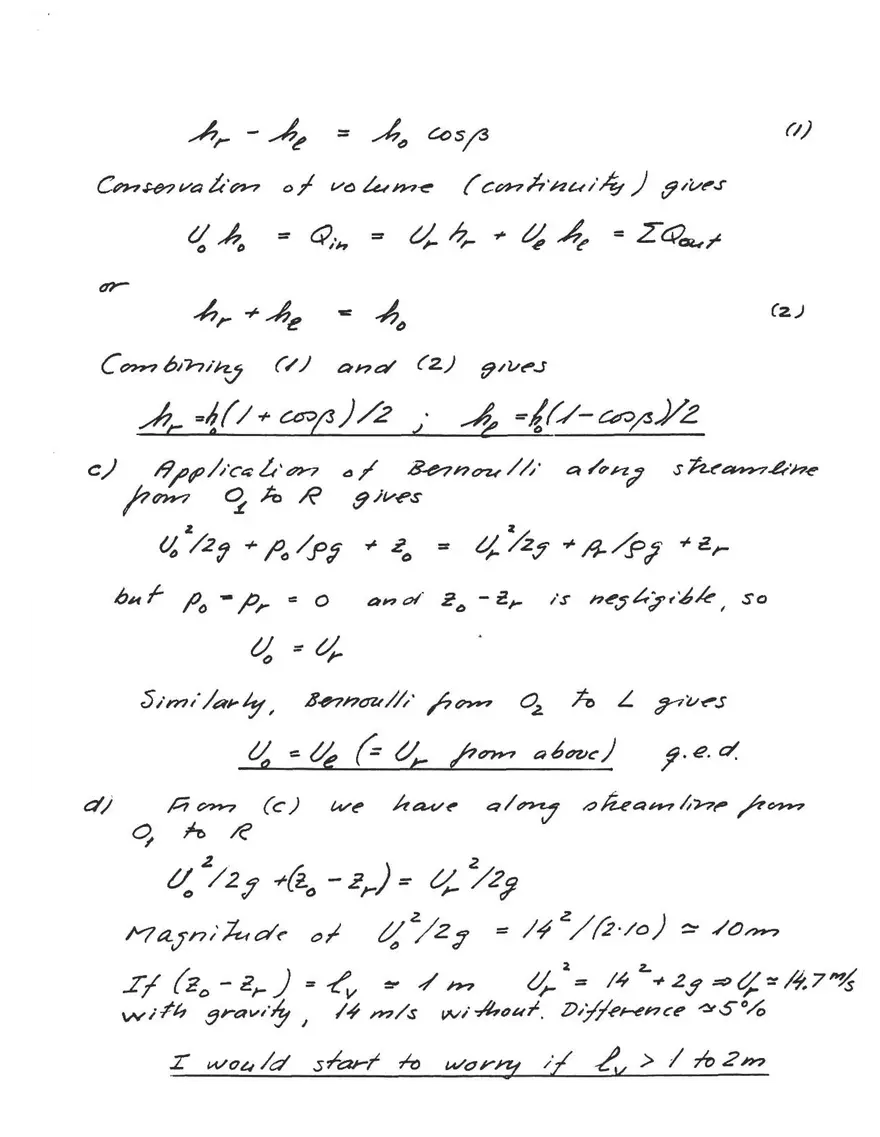 h_r - h_e = h_o cosβ (1)
Conservation of volume (continuity) gives
U_o h_o = Q_in = U_r h_r + U_e h_e = ΣQ_out
or
h_r + h_e = h_o (2)
Combining (1) and (2) gives
h_r = h_o(1 + cosβ)/2 ; h_e = h_o(1 - cosβ)/2
c) Application of Bernoulli along streamline
from O_1 to R gives
U_o^2/2g + p_o/ρg + z_o = U_r^2/2g + p_r/ρg + z_r
but p_o = p_r = 0 and z_o - z_r is negligible, so
U_o = U_r
Similarly, Bernoulli from O_2 to L gives
U_o = U_e (= U_r from above) q.e.d.
d) From (c) we have along streamline from
O_1 to R
U_o^2/2g + (z_o - z_r) = U_r^2/2g
Magnitude of U_o^2/2g = 14^2/(2·10) ≃ 10m
If (z_o - z_r) = l_v ≃ 1 m U_r^2 = 14^2 + 2g ⇒ U_r ≃ 14.7 m/s
with gravity, 14 m/s without. Difference ≃ 5%
I would start to worry if l_v > 1 to 2m